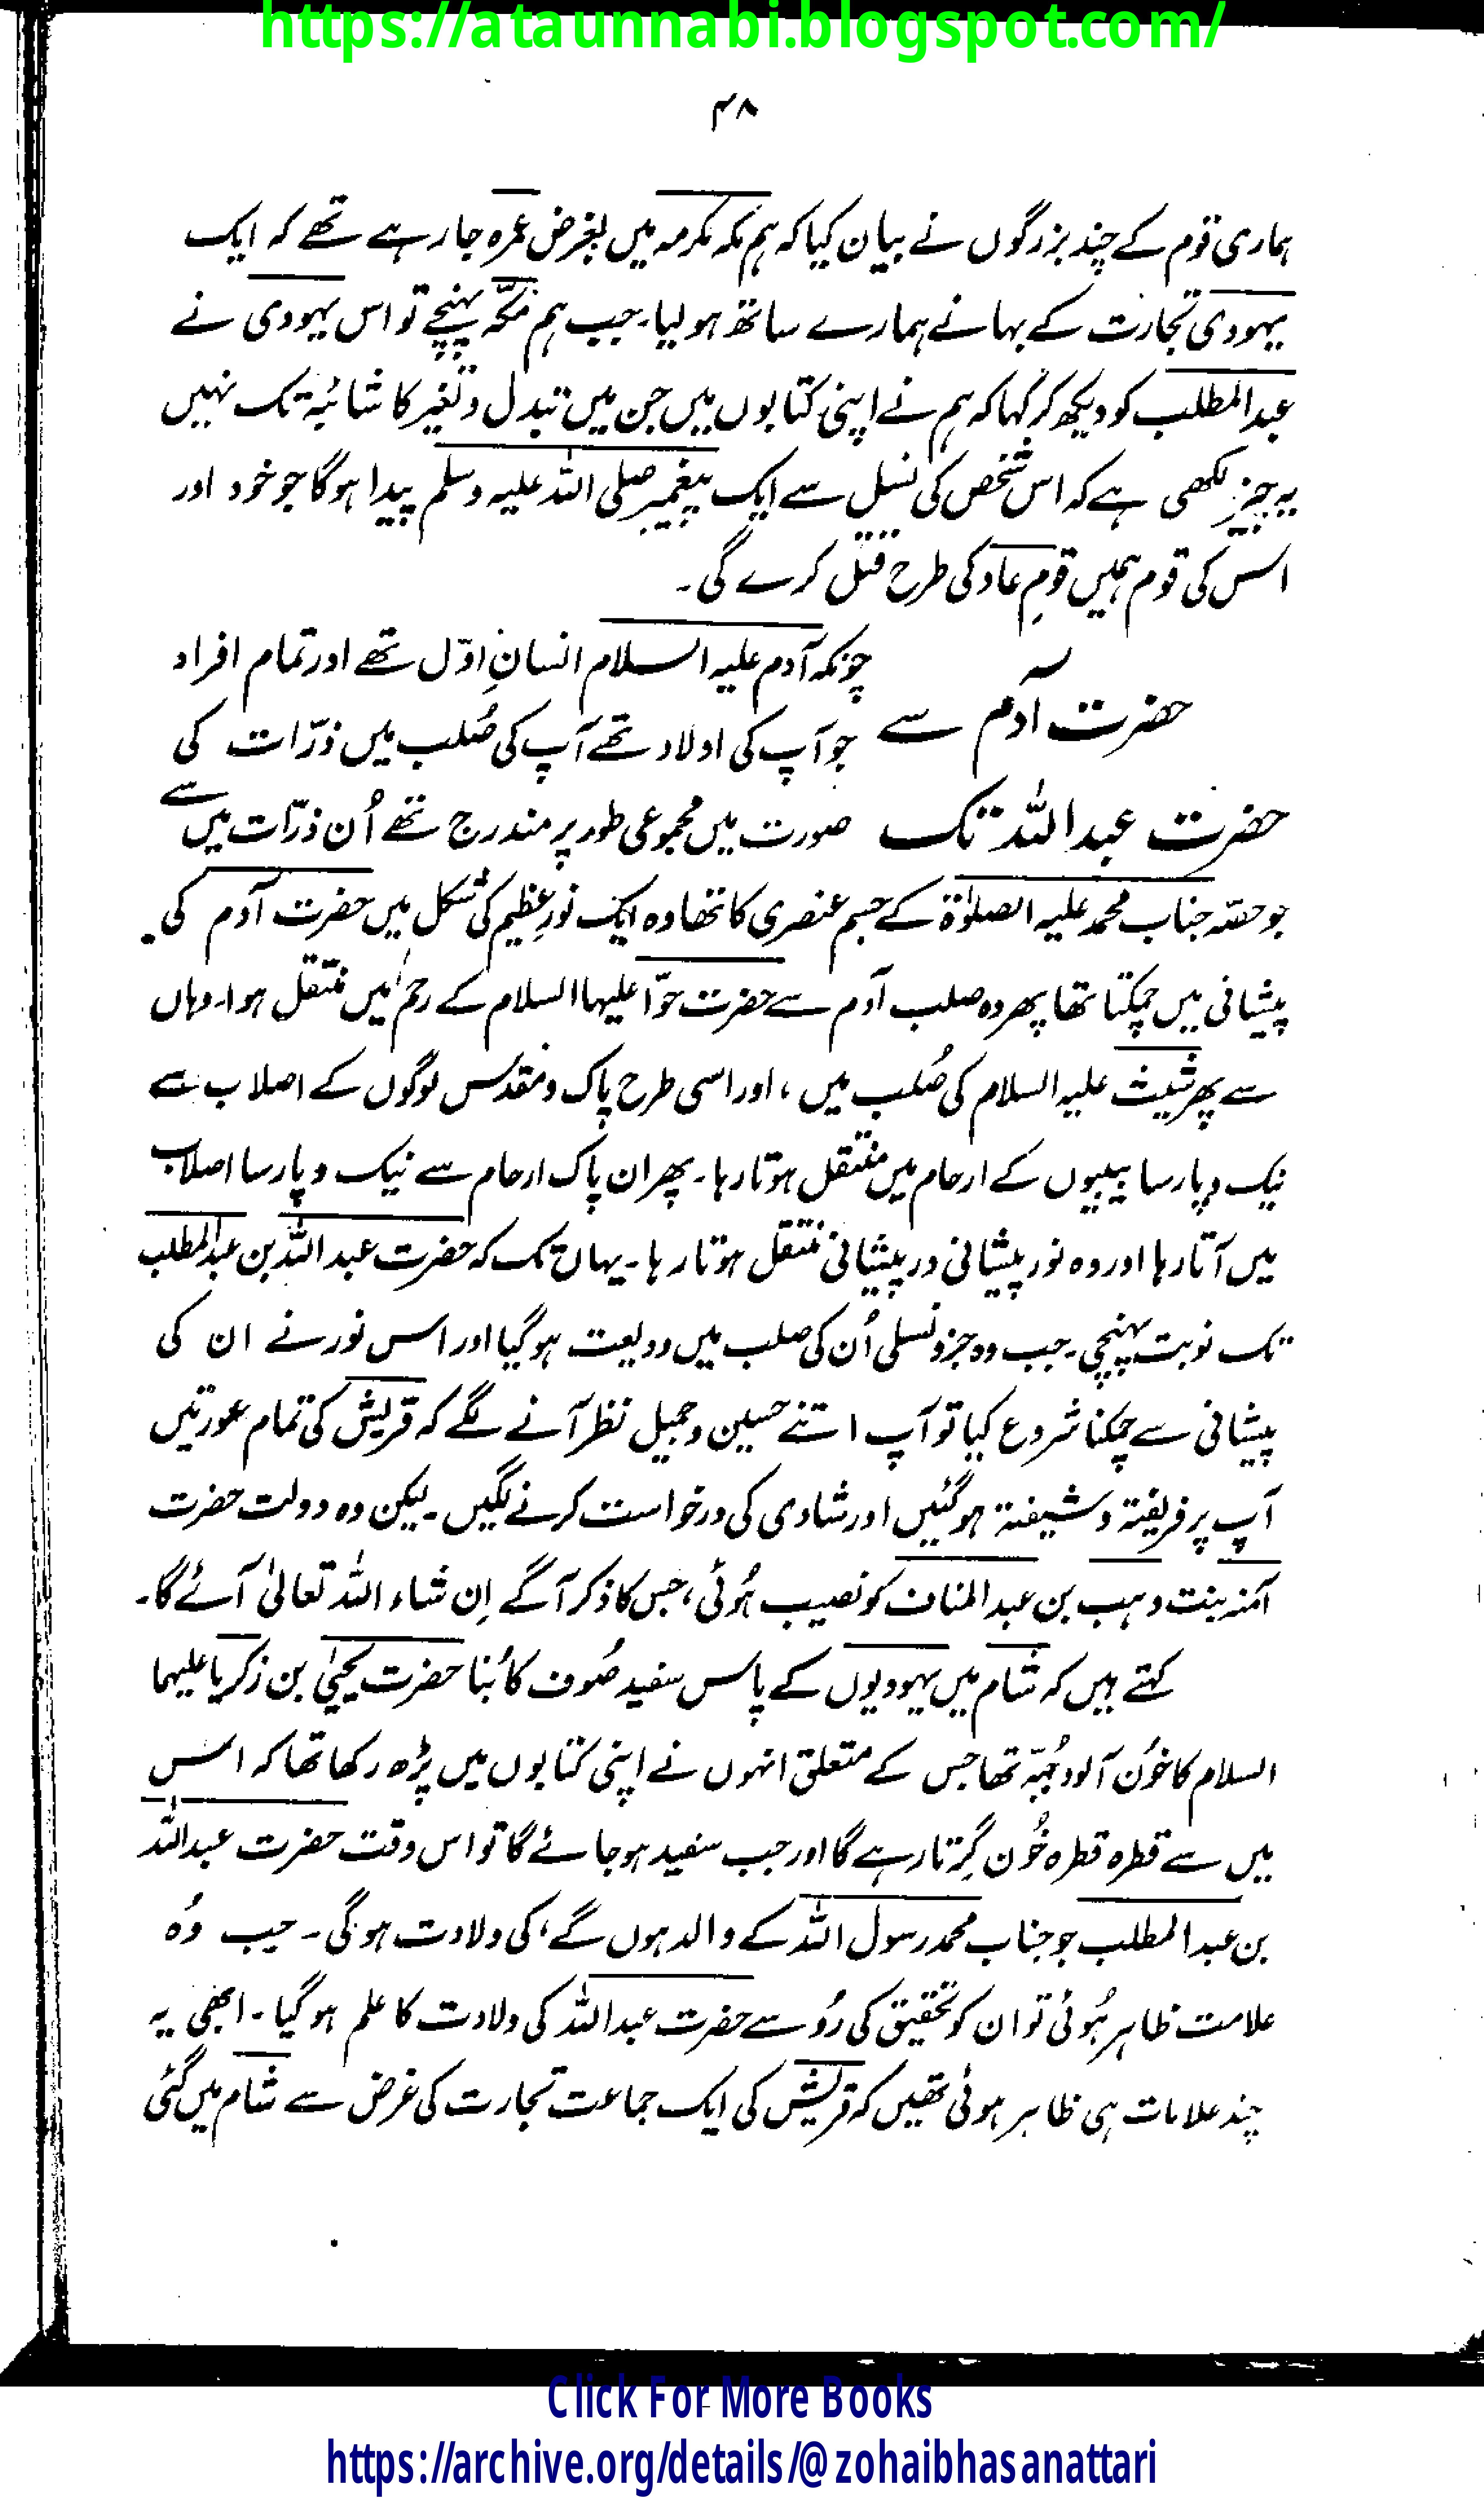 https://ataunnabi.blogspot.com/
۴۸
ہماری قوم کے چند بزرگوں نے بیان کیا کہ ہم مکہ مکرمہ میں بغرض عمرہ جا رہے تھے کہ ایک
یہودی تجارت کے بہانے ہمارے ساتھ ہو لیا۔ جب ہم مکّہ پہنچے تو اس یہودی نے
عبدالمطلب کو دیکھ کر کہا کہ ہم نے اپنی کتابوں میں جن میں تبدل و تغیر کا شائبہ تک نہیں
یہ چیز لکھی ہے کہ اس شخص کی نسل سے ایک پیغمبر صلی اللہ علیہ وسلم پیدا ہوگا جو خود اور
اس کی قوم ہمیں قومِ عاد کی طرح قتل کرے گی۔
حضرت آدم سے
حضرت عبداللہ تک
چونکہ آدم علیہ السلام انسانِ اوّل تھے اور تمام افراد
جو آپ کی اولاد تھے آپ کی صُلب میں ذرّات کی
صورت میں مجموعی طور پر مندرج تھے اُن ذرّات میں سے
جو حصّہ جناب محمد علیہ الصلوٰۃ کے جسم عنصری کا تھا وہ ایک نورِ عظیم کی شکل میں حضرت آدم کی
پیشانی میں چمکتا تھا پھر وہ صلب آدم سے حضرت حوّا علیہا السلام کے رحم میں منتقل ہوا۔ وہاں
سے پھر شیث علیہ السلام کی صُلب میں، اور اسی طرح پاک و مقدس لوگوں کے اصلاب سے
نیک و پارسا بیبیوں کے ارحام میں منتقل ہوتا رہا۔ پھر ان پاک ارحام سے نیک و پارسا اصلاب
میں آتا رہا اور وہ نور پیشانی در پیشانی منتقل ہوتا رہا۔ یہاں تک کہ حضرت عبداللہ بن عبدالمطلب
تک نوبت پہنچی۔ جب وہ جزو نسلی اُن کی صلب میں ودیعت ہو گیا اور اس نور نے ان کی
پیشانی سے چمکنا شروع کیا تو آپ اتنے حسین و جمیل نظر آنے لگے کہ قریش کی تمام عورتیں
آپ پر فریفتہ و شیفتہ ہو گئیں اور شادی کی درخواست کرنے لگیں۔ لیکن وہ دولت حضرت
آمنہ بنت وہب بن عبد المناف کو نصیب ہُوئی، جس کا ذکر آگے اِن شاء اللہ تعالیٰ آئے گا۔
کہتے ہیں کہ شام میں یہودیوں کے پاس سفید صُوف کا بُنا حضرت یحییٰ بن زکریا علیہما
السلام کا خُون آلود جُبّہ تھا جس کے متعلق انہوں نے اپنی کتابوں میں پڑھ رکھا تھا کہ اس
میں سے قطرہ قطرہ خُون گِرتا رہے گا اور جب سفید ہو جائے گا تو اس وقت حضرت عبداللہ
بن عبد المطلب جو جناب محمد رسول اللہ کے والد ہوں گے، کی ولادت ہوگی۔ جب وُہ
علامت ظاہر ہُوئی تو ان کو تحقیق کی رُو سے حضرت عبداللہ کی ولادت کا علم ہو گیا۔ ابھی یہ
چند علامات ہی ظاہر ہوئی تھیں کہ قریش کی ایک جماعت تجارت کی غرض سے شام میں گئی
Click For More Books
https://archive.org/details/@zohaibhasanattari